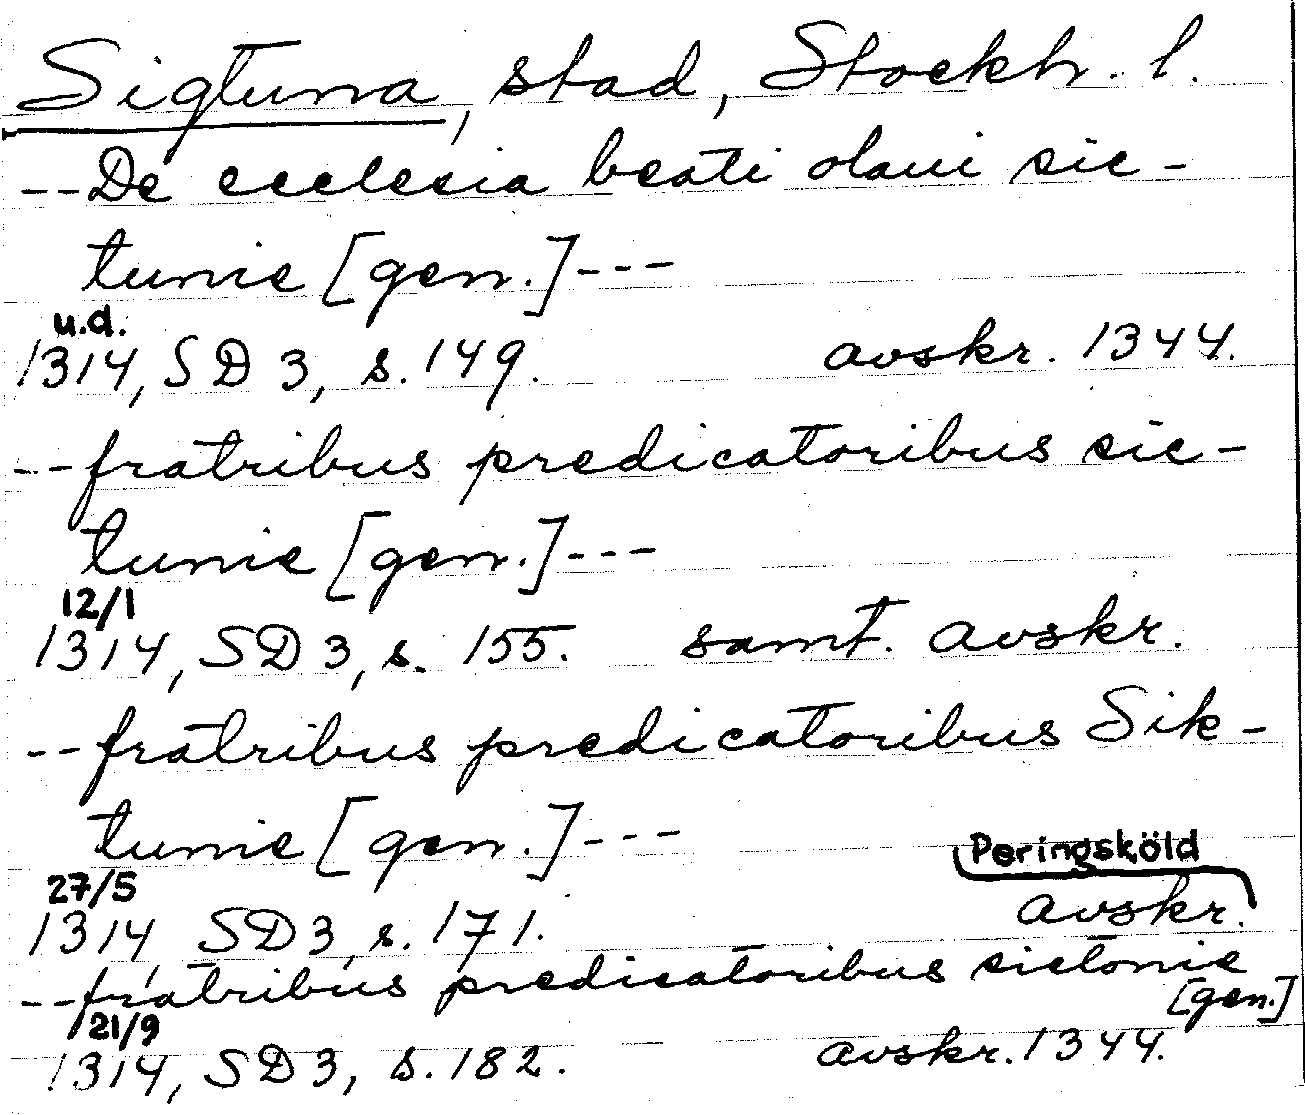 Sigtuna, stad, Stockh. l.
--De ecclesia beati olaui sic-
tunie [gen.]---
u.d.
1314, SD 3, s. 149. avskr. 1344.
--fratribus predicatoribus sic-
tunie [gen.]---
12/1
1314, SD 3, s. 155. samt. avskr.
--fratribus predicatoribus Sik-
tunie [gen.]---
27/5 Peringsköld
1314, SD 3, s. 171. avskr.
--fratribus predicatoribus sictonie
[gen.]
21/9
1314, SD 3, s. 182. avskr. 1344.